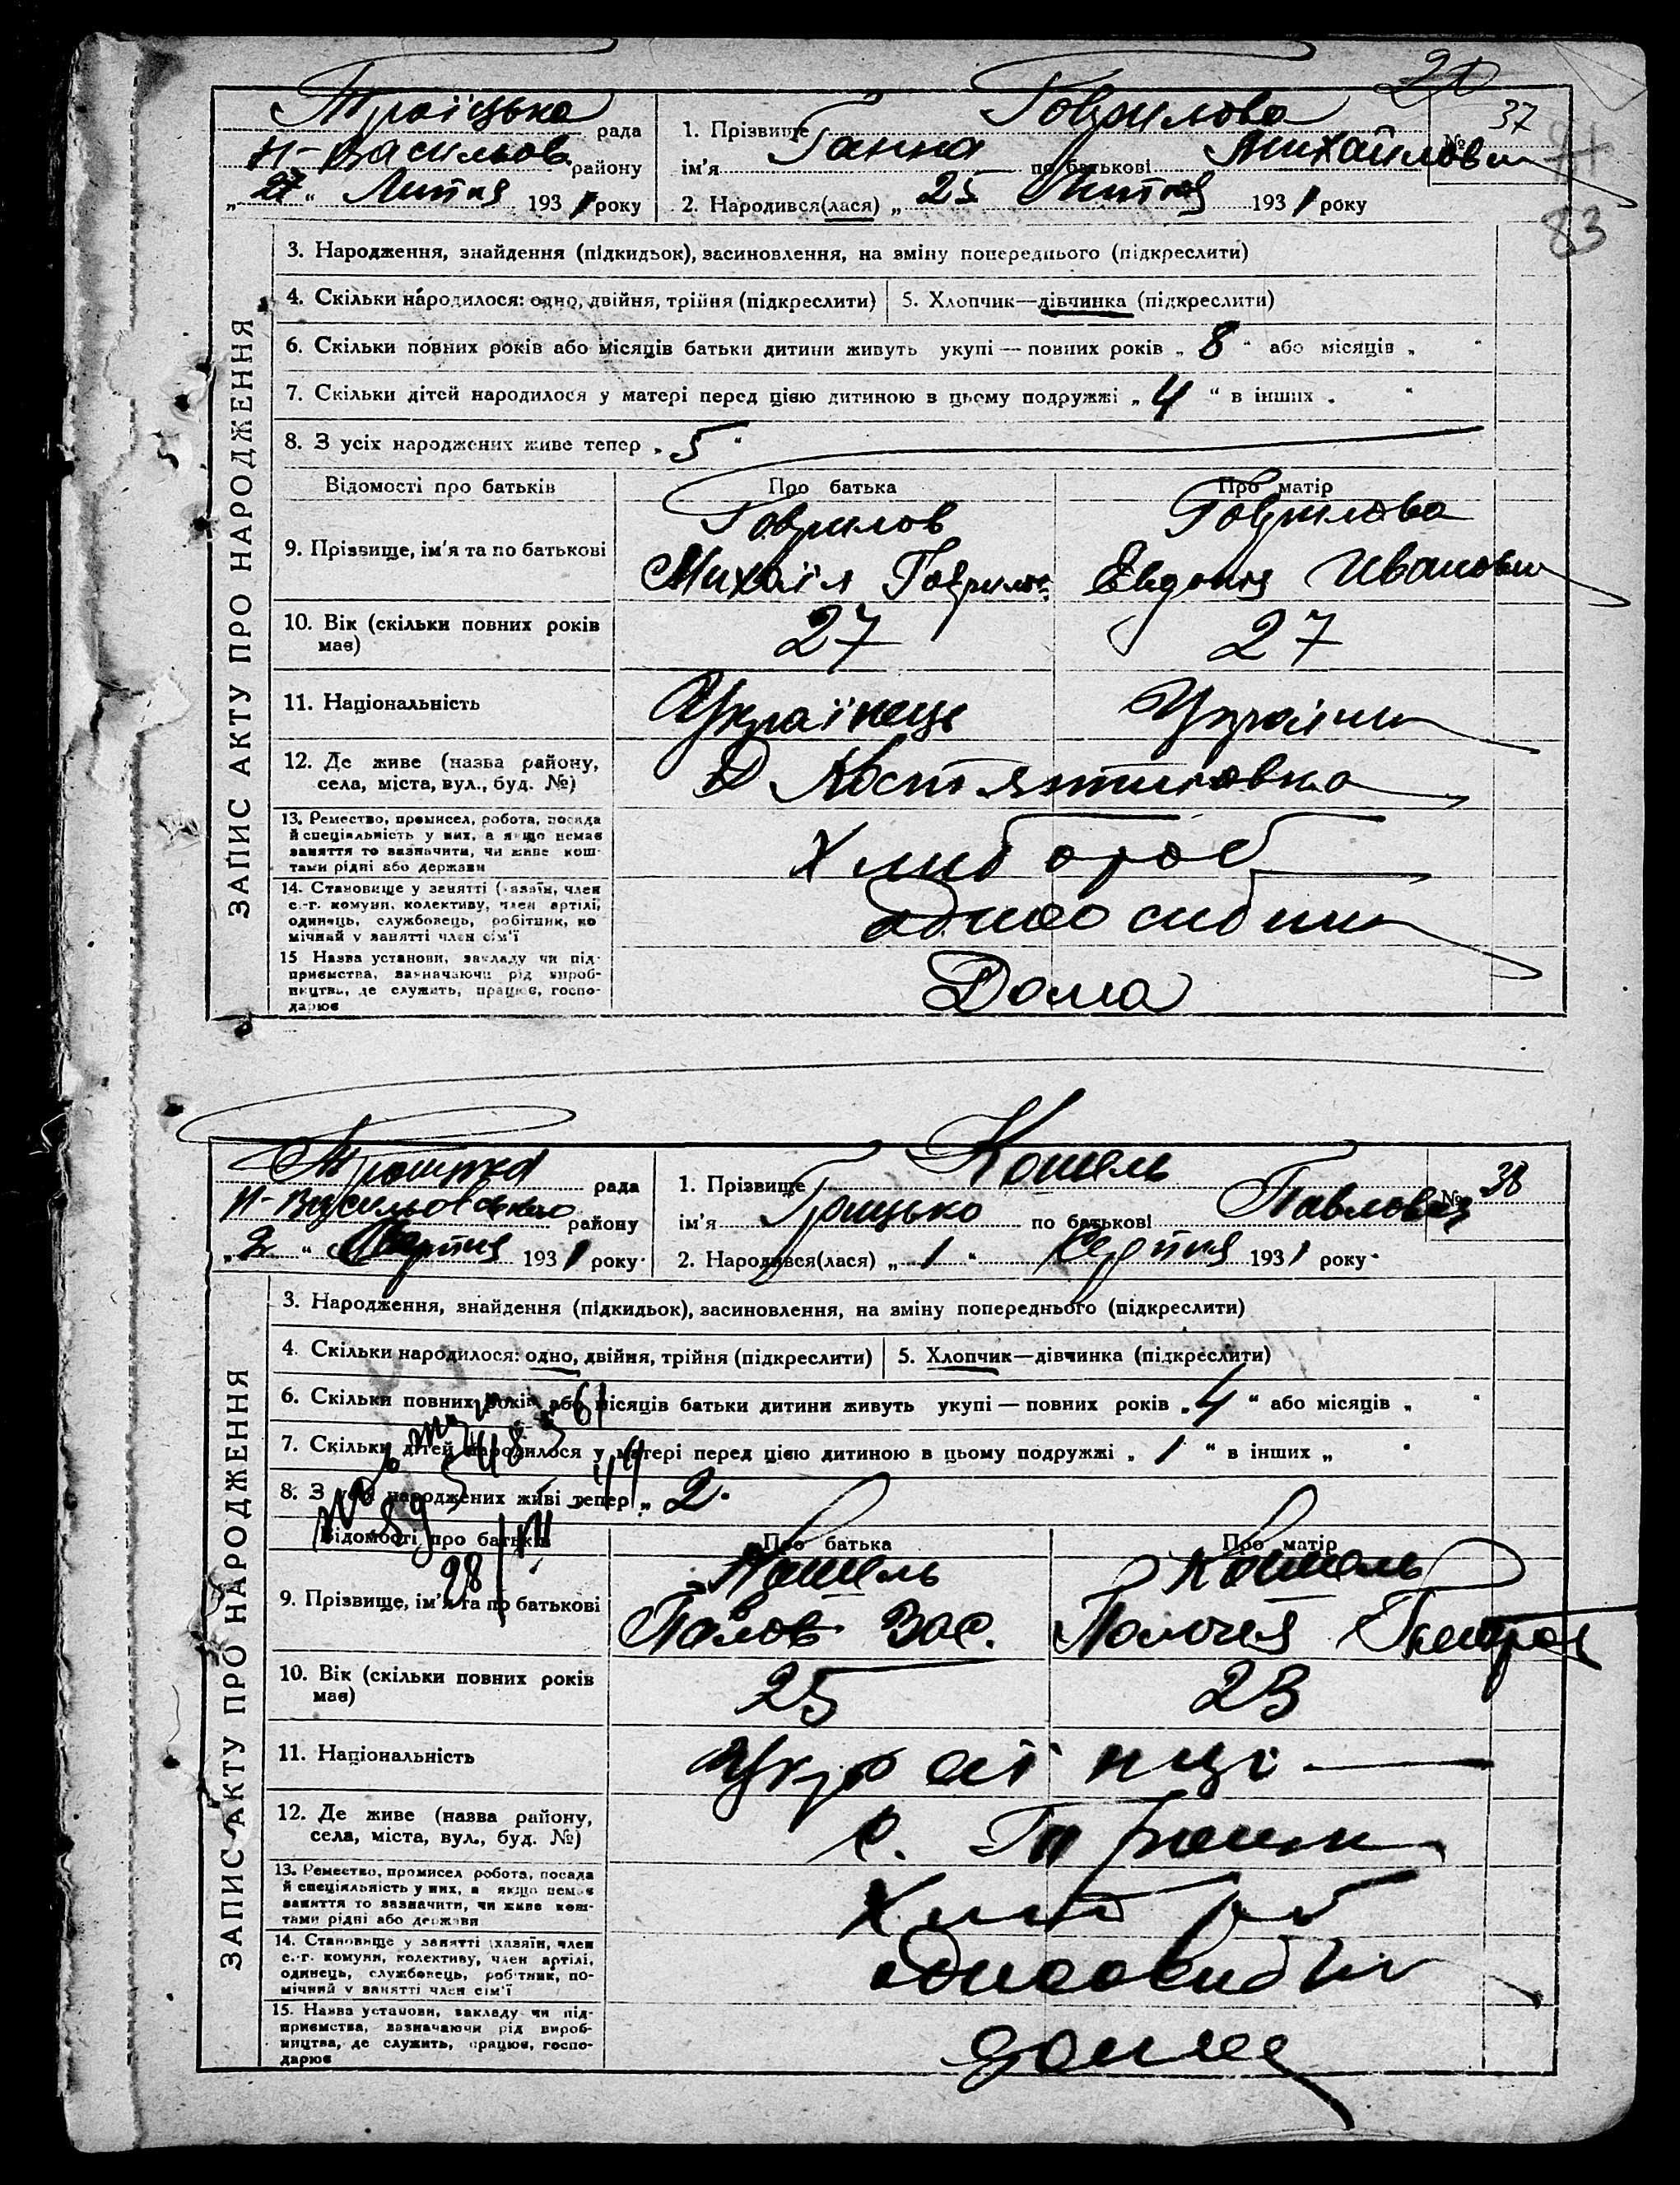 Троїцька рада
Н-Васильов. району
„27“ Липня 1931 року
37
83
1. Прізвище Гаврилова
ім'я Ганна по батькові Михайловн
2. Народився(лася) „25 Липня 1931 року
ЗАПИС АКТУ ПРО НАРОДЖЕННЯ
3. Народження, знайдення (підкидьок), засиновлення, на зміну попереднього (підкреслити)
4. Скільки народилося: одно, двійня, трійня (підкреслити) 5. Хлопчик—дівчинка (підкреслити)
6. Скільки повних років або місяців батьки дитини живуть укупі — повних років „8“ або місяців „ “
7. Скільки дітей народилося у матері перед цією дитиною в цьому подружжі „4“ в інших „ “
8. З усіх народжених живе тепер „5“
Відомості про батьків Про батька Про матір
9. Прізвище, ім'я та по батькові
Гаврилов Гаврилова
Михаіл Гаврилов. Евдокия Ивановн
10. Вік (скільки повних років має) 27 27
11. Національність Українець Україн
12. Де живе (назва району, села, міста, вул., буд. №)
13. Ремество, промисел, робота, посада
й спеціяльність у них, а якщо немає
заняття то зазначити, чи живе кош-
тами рідні або держави
Хлибороб
14. Становище у занятті (хазяїн, член
с.-г. комуни, колективу, член артілі,
одинець, службовець, робітник, по
мічний у занятті член сім'ї
одноосибник
15 Назва установи, закладу чи під-
приємства, зазначаючи рід вироб-
ництва, де служить, працює, госпо-
дарює
Дома
рада
Н-Васильовского району
„2“ Серпня 1931 року
38
1. Прізвище Кошель
ім'я Грицько по батькові Павлович
2. Народився(лася) „1“ Серпня 1931 року
ЗАПИС АКТУ ПРО НАРОДЖЕННЯ
3. Народження, знайдення (підкидьок), засиновлення, на зміну попереднього (підкреслити)
4. Скільки народилося: одно, двійня, трійня (підкреслити) 5. Хлопчик—дівчинка (підкреслити)
6. Скільки повних років або місяців батьки дитини живуть укупі — повних років „4“ або місяців „ “
7. Скільки дітей народилося у матері перед цією дитиною в цьому подружжі „1“ в інших „ “
8. З усіх народжених живі тепер „2“
Відомості про батьків Про батька Про матір
9. Прізвище, ім'я та по батькові
Кошель Кошель
Павло Вас.
10. Вік (скільки повних років має) 25 23
11. Національність Українці
12. Де живе (назва району, села, міста, вул., буд. №) с.
13. Ремество, промисел робота, посада
й спеціяльність у них, а якщо немає
заняття то зазначити, чи живе кош-
тами рідні або держави
Хлибороб
14. Становище у занятті (хазяїн, член
с.-г. комуни, колективу, член артілі,
одинець, службовець, робітник, по-
мічний у занятті член сім'ї
15. Назва установи, закладу чи під-
приємства, зазначаючи рід вироб-
ництва, де служить, працює, госпо-
дарює
дома